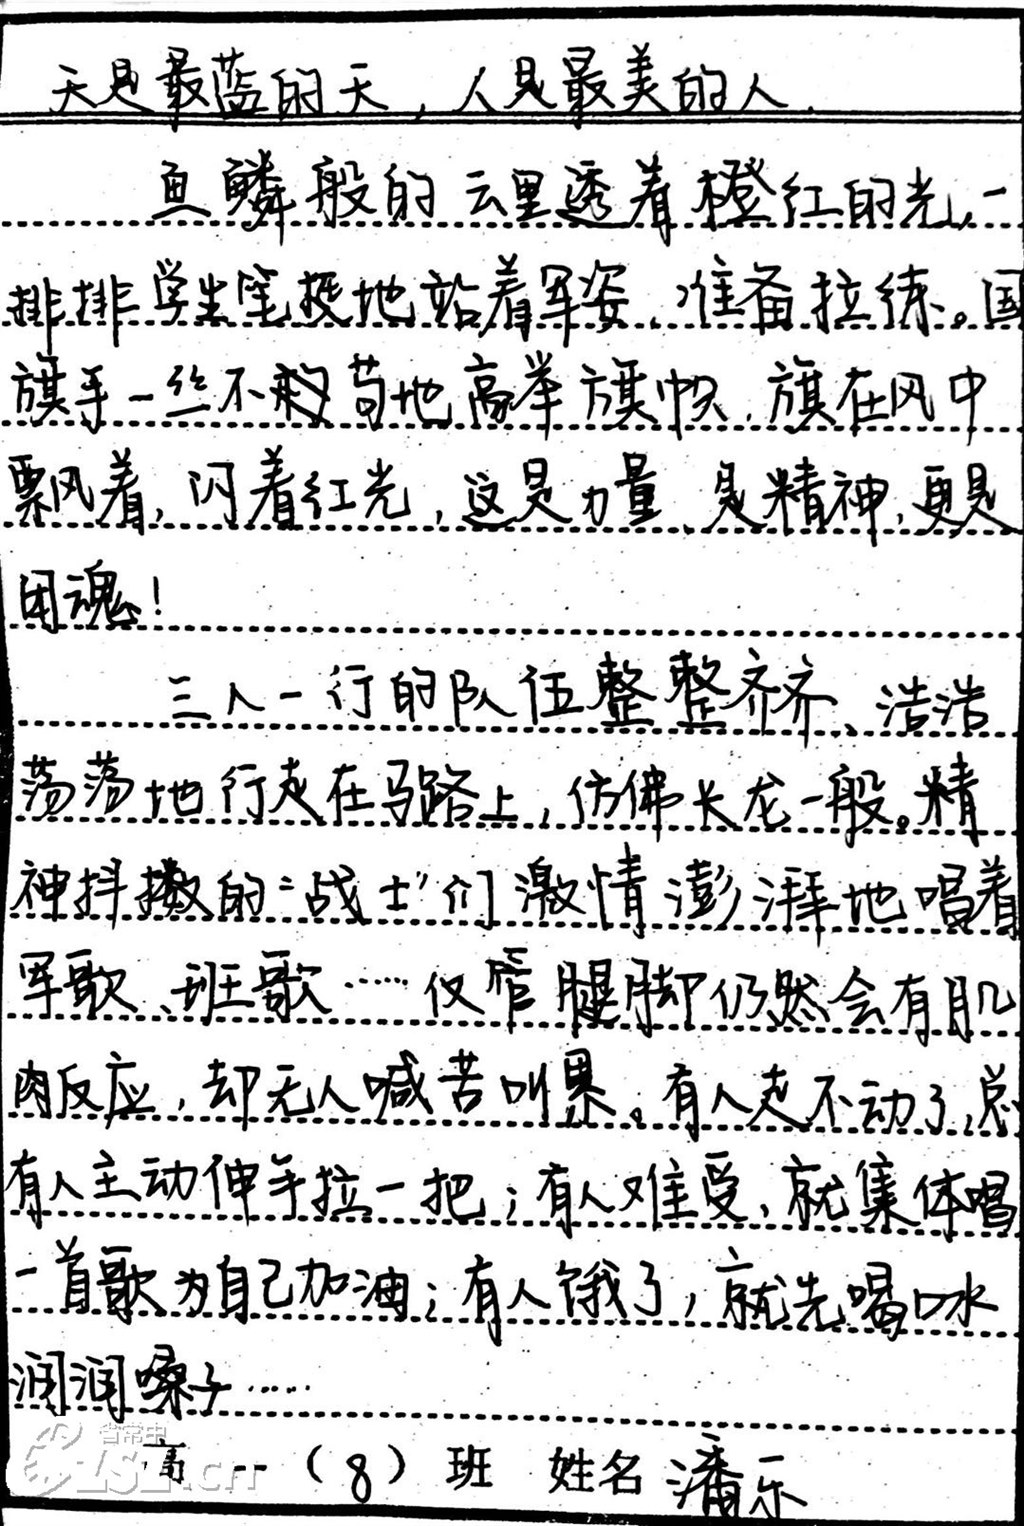 天是最蓝的天,人是最美的人.
鱼鳞般的云里透着橙红的光,一
排排学生笔挺地站着军姿,准备拉练。国
旗手一丝不苟地高举旗帜,旗在风中
飘着,闪着红光,这是力量,是精神,更是
团魂!
三人一行的队伍整整齐齐、浩浩
荡荡地行走在马路上,仿佛长龙一般。精
神抖擞的“战士”们激情澎湃地唱着
军歌、班歌……仅管腿脚仍然会有肌
肉反应,却无人喊苦叫累。有人走不动了,总
有人主动伸手拉一把;有人难受,就集体唱
一首歌为自己加油;有人饿了,就先喝口水
润润嗓子……
高一(8)班 姓名 潘乐
省常中